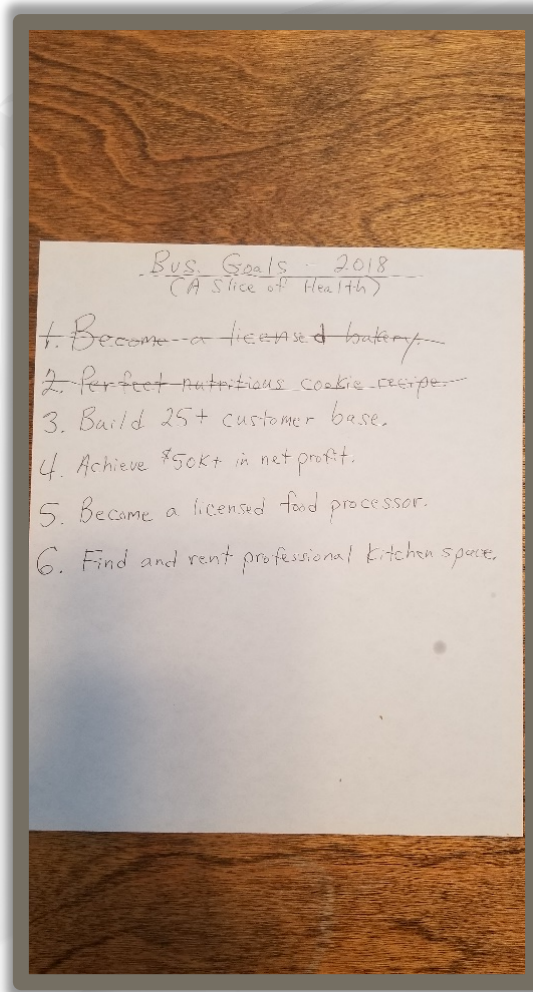 Bus. Goals - 2018
(A Slice of Health)
1. Become a licensed bakery.
2. Perfect nutritious cookie recipe.
3. Build 25+ customer base.
4. Achieve $50K+ in net profit.
5. Become a licensed food processor.
6. Find and rent professional kitchen space.